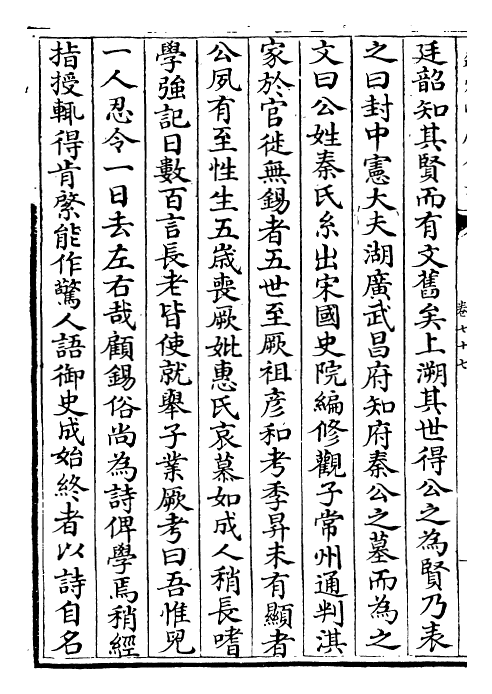 廷韶知其賢而有文舊矣上溯其世得公之為賢乃表
之曰封中憲大夫湖廣武昌府知府秦公之墓而為之
文曰公姓秦氏系出宋國史院編修觀子常州通判湛
家於官徙無錫者五世至厥祖彦和考季昇未有顯者
公夙有至性生五歲喪厥妣惠氏哀慕如成人稍長嗜
學強記日數百言長老皆使就舉子業厥考曰吾惟兒
一人忍令一日去左右哉顧錫俗尚為詩俾學焉稍經
指授輒得肯綮能作驚人語御史成始終者以詩自名
卷七十七